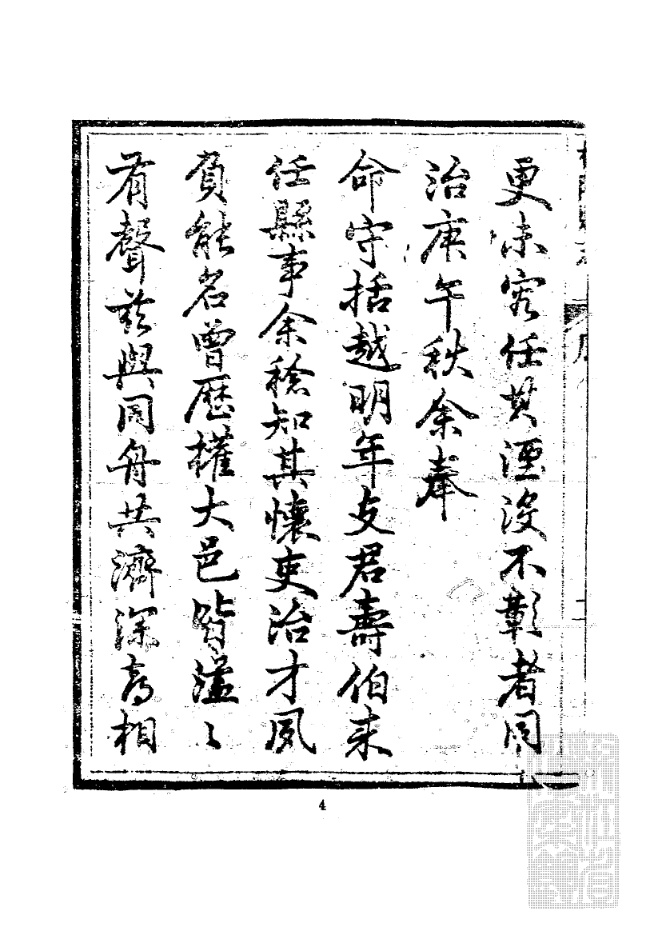 更未容任其湮没不彰者同
治庚午秋余奉
命守括越明年支君壽伯来
任縣事余稔知其懷吏治才夙
負能名曾歷權大邑皆
有聲茲與同舟共濟深喜相
4